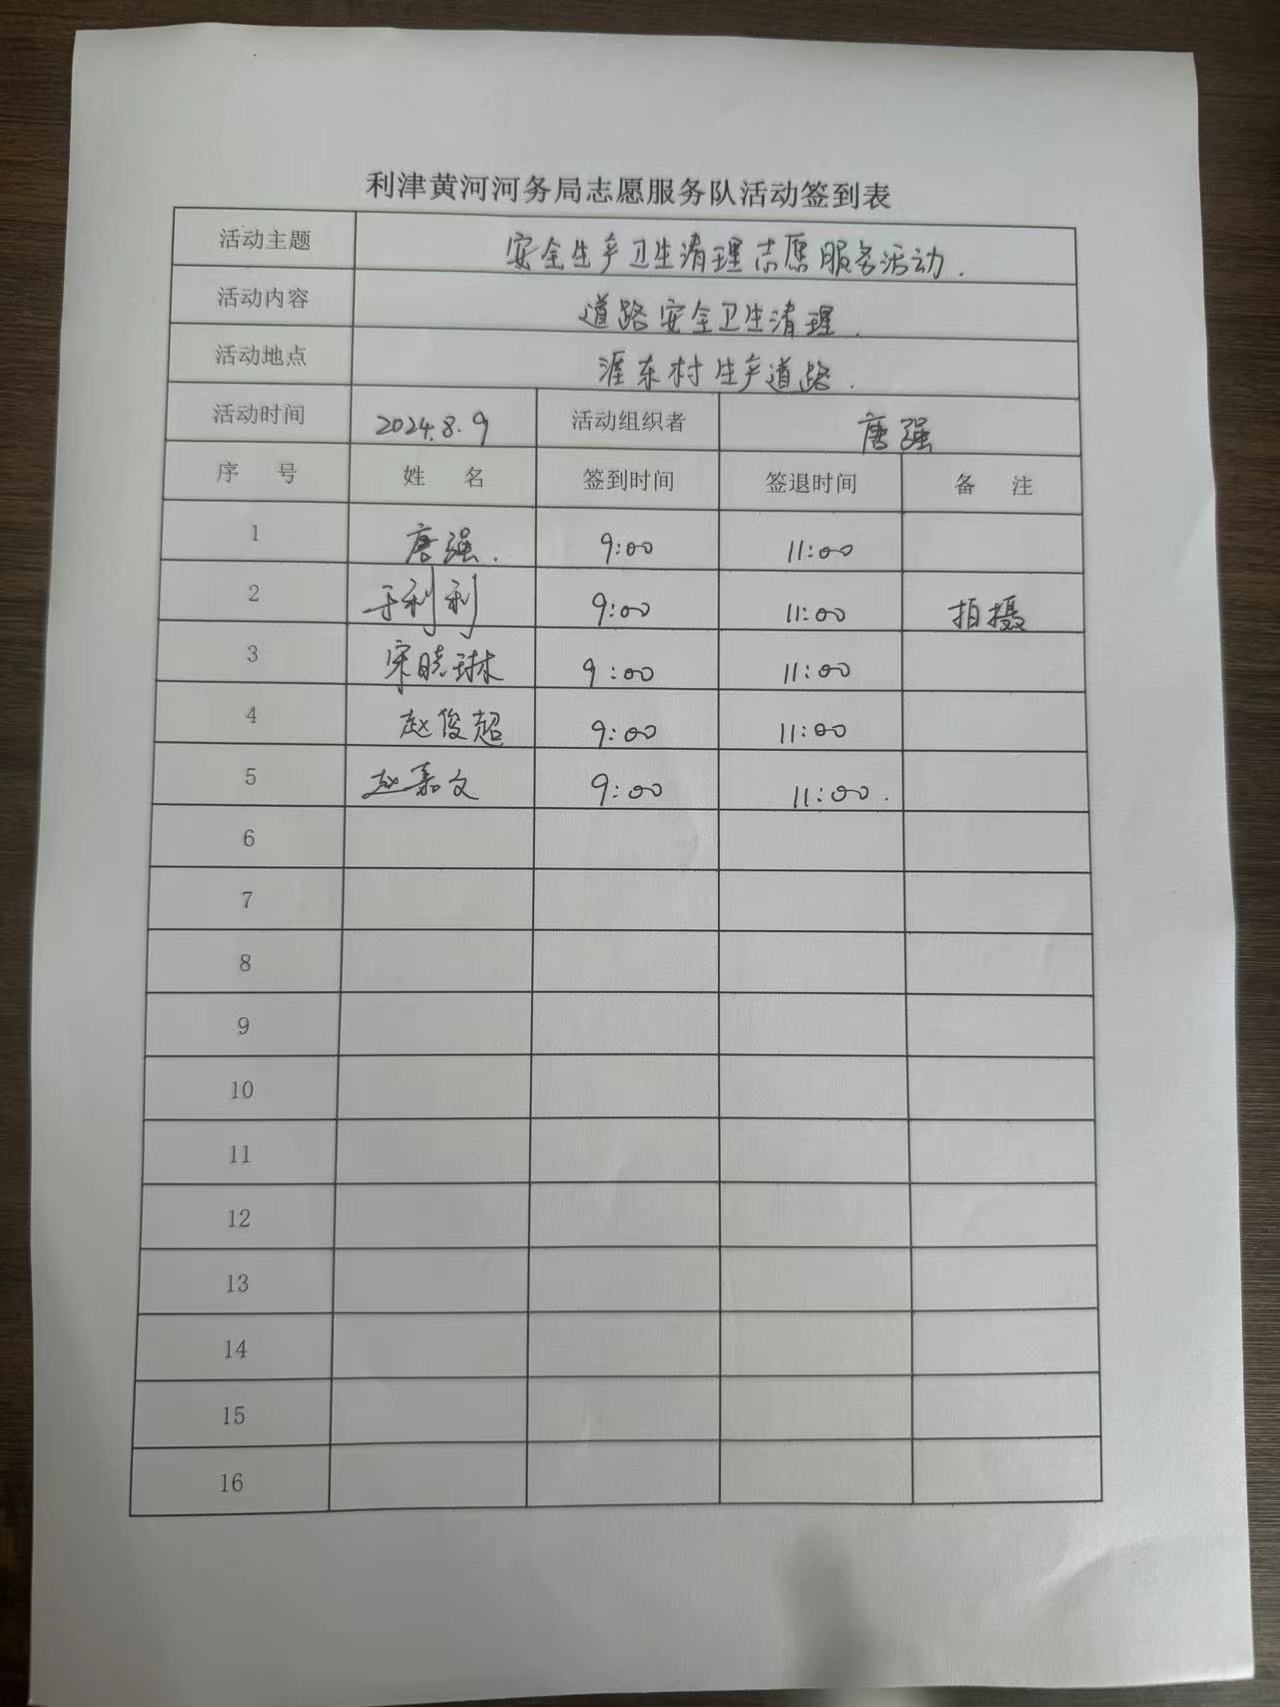 利津黄河河务局志愿服务队活动签到表
活动主题 安全生产卫生清理志愿服务活动.
活动内容 道路安全卫生清理.
活动地点 涯东村生产道路.
活动时间 2024.8.9 活动组织者 唐强
序 号 姓 名 签到时间 签退时间 备 注
1 唐强. 9:00 11:00
2 于利利 9:00 11:00 拍摄
3 宋晓琳 9:00 11:00
4 赵俊超 9:00 11:00
5 赵嘉文 9:00 11:00.
6
7
8
9
10
11
12
13
14
15
16